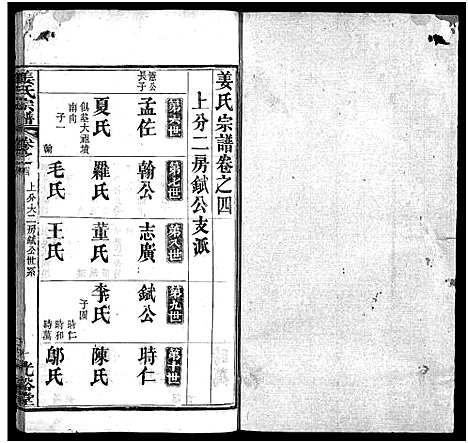 姜氏宗譜卷之四
上分二房鉽公支派
第六世
第七世
第八世
第九世
第十世
長子
孟佐
翰公
志廣
鉽公
時仁
夏氏
俱葬大祖墳
南向
子一
翰
羅氏
董氏
李氏
子四
時仁
時和
時萬
陳氏
毛氏
王氏
鄔氏
姜氏宗譜
卷之四
上分大二房鉽公世系